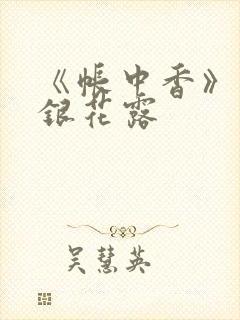 《帐中香》
银花露
吴慧英